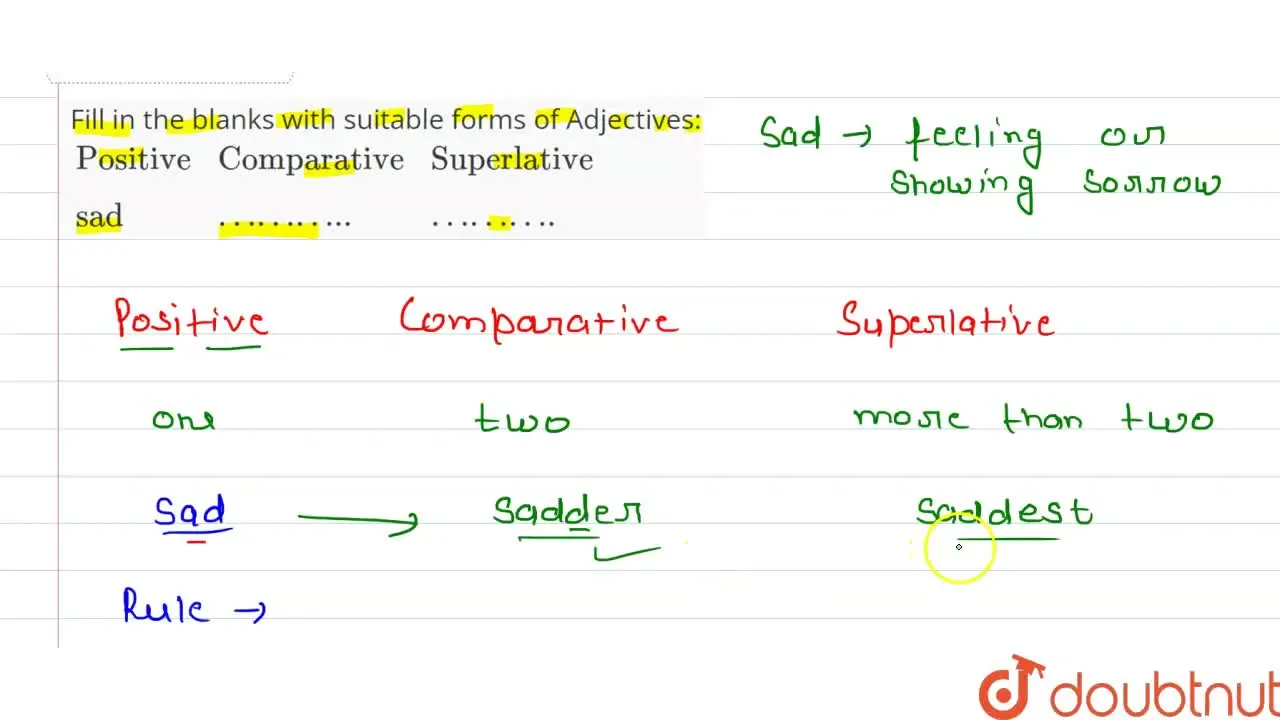 Fill in the blanks with suitable forms of Adjectives:
Positive Comparative Superlative
sad ………… ……….
Sad → feeling our
showing sorrow
Positive Comparative Superlative
one two more than two
Sad → Sadder Saddest
Rule →
doubtnut